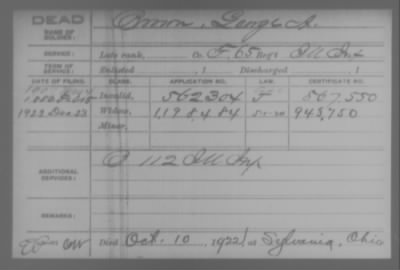 DEAD
NAME OF SOLDIER: George A.
SERVICE: Late rank, Co. F, 65 Reg't Ill Inf
TERM OF SERVICE: Enlisted , 1 Discharged , 1
DATE OF FILING. CLASS. APPLICATION NO. LAW. CERTIFICATE NO.
Invalid, 562304 F 867,550
1922 Dec 23 Widow, 1198484 945,750
Minor,
ADDITIONAL SERVICES: 112 Ill Inf
REMARKS:
Died Oct. 10, 1922, at Sylvania, Ohio